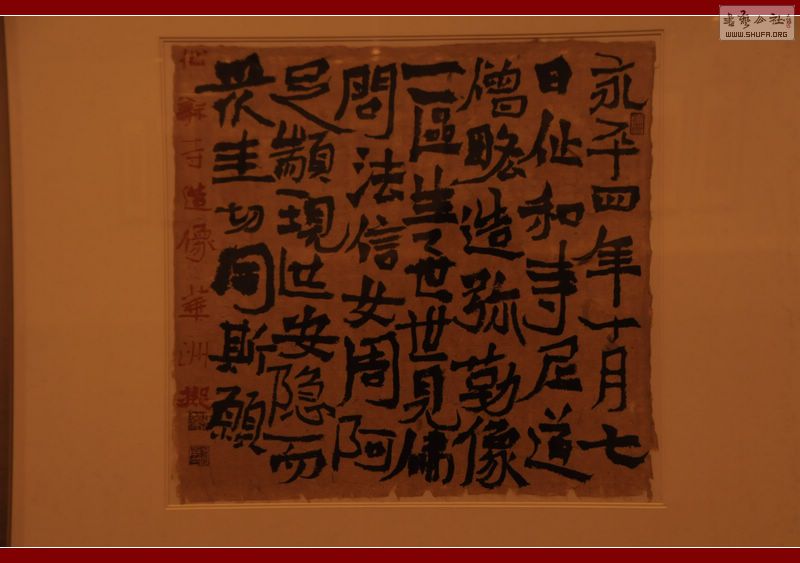 永平四年十月七
日仙和寺尼道
僧略造弥勒像
一區生々世世見佛
問法信女周阿
足願現世安隐而
衆生切同斯願
仙龢寺造像華洲擬
書藝公社
WWW.SHUFA.ORG